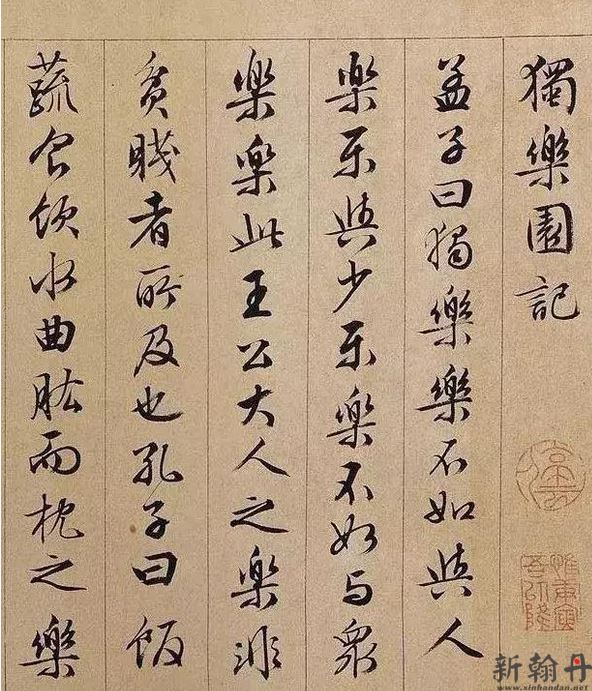 獨樂園記
孟子曰獨樂樂不如與人
樂樂與少樂樂不如與衆
樂樂此王公大人之樂非
貧賤者所及也孔子曰飯
蔬食飲水曲肱而枕之樂
惟庚寅吾以降
新翰丹
www.xinhandan.net